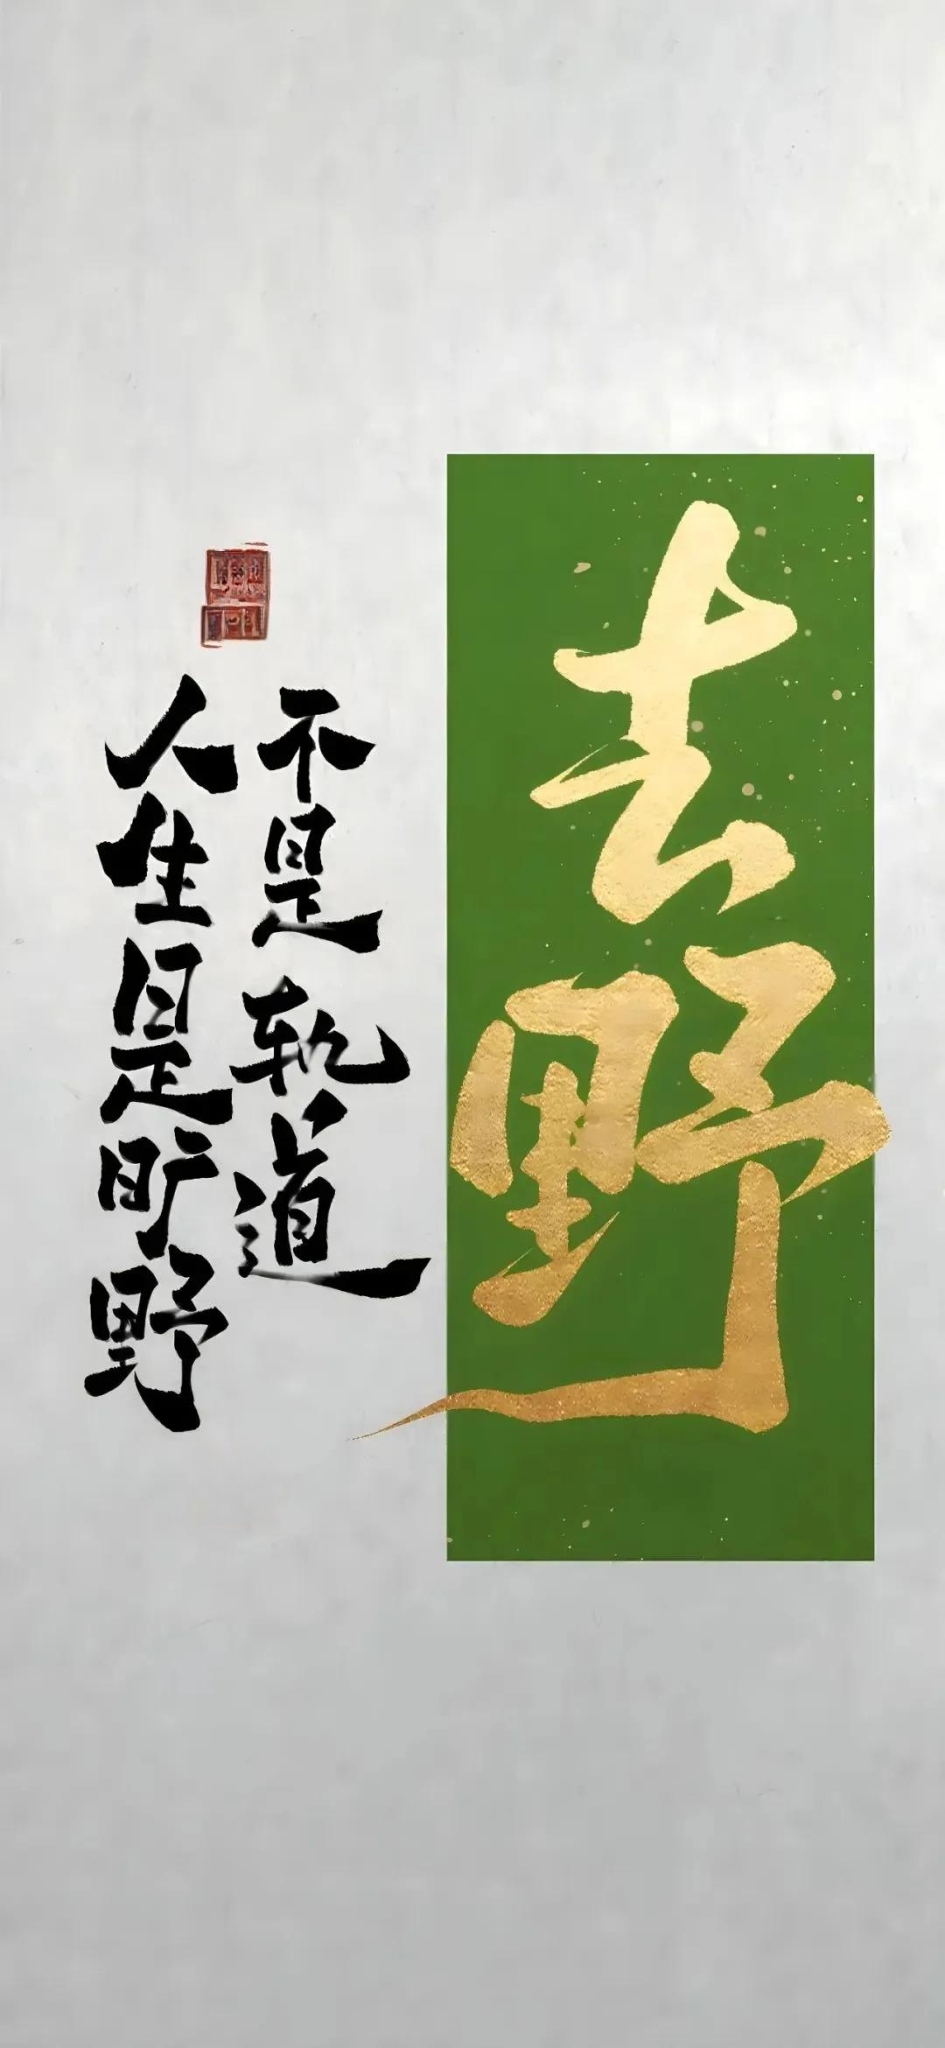 去野
不是轨道
人生是旷野